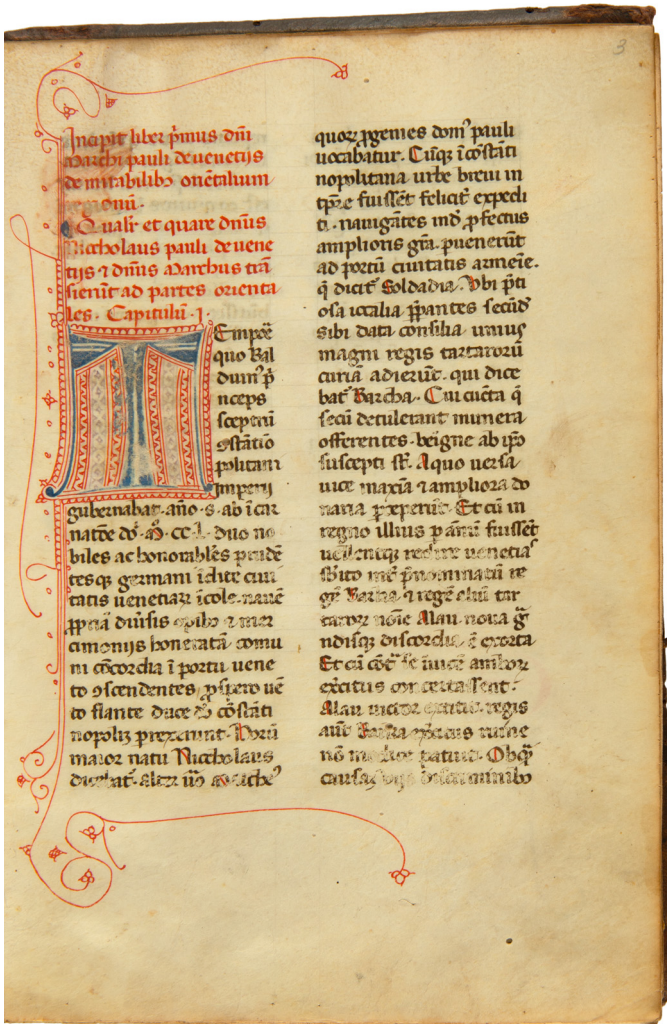 3
Incipit liber p̄mus dn̄i
Marchi pauli de venetijs
de mirabilibꝫ orientalium
regionū.
Qualit̄ et quare dn̄us
Niccholaus pauli de vene
tijs ⁊ dn̄us Marchus trā
sierūt ad partes orienta
les. Capitulū .j.
Tempor̄
quo Bal
duin̄ p̄
nceps
sceptrū
ꝯstātio
politani
Imperij
gubernabat. año .s. ab īcar
natōe
duo no
biles ac honorabiles prudē
tesqꝫ germani īclite ciui
tatis venetiaꝝ īcole. nauē
ꝓpriā diūsis opibꝫ ⁊ mer
cimonijs honeratā. comu
ni cōcordia ī portu vene
to ꝯscendentes, ꝓspero uē
to flante duce dō cōstāti
nopolim
maior natu Niccholaus
dicebat̄. alter ūo
quoꝝ ꝓgenies dom᷒ pauli
uocabatur. Cūqꝫ ī cōstāti
nopolitana urbe breui in
tp̄re fuissēt felicit̄ expedi
ti. nauigātes īnd̄ ꝓfectus
amplioris gr̄a. ꝑuenerūt
ad portū ciuitatis armeīe.
q̄ dicit̄ Soldadia. Vbi p̄ti
osa iocalia p̄ꝑantes secūd᷒
sibi data consilia unius
magni regis tartaroꝝū
curiā adierūt. qui dice
bat̄ Barcha. Cui cūcta q̄
secū detulerant munera
offerentes. beīgne ab ip̄o
suscepti st̄. A quo uersa
uice maxīa ⁊ ampliora do
naria
Et cū in
regno illius ꝑ annū fuissēt
uellentqꝫ redire uenetias
regē aliū tar
taroꝝ noīe Alau noua ḡ
ndisqꝫ discordia ē exorta
Et cū
se īuicē amboꝝ
exercitus concertassent.
Alau victor
regis
aūt Barcha exercitus
nō modicū patuit. Ob qm̄
causaꝫ
discriminibꝫ